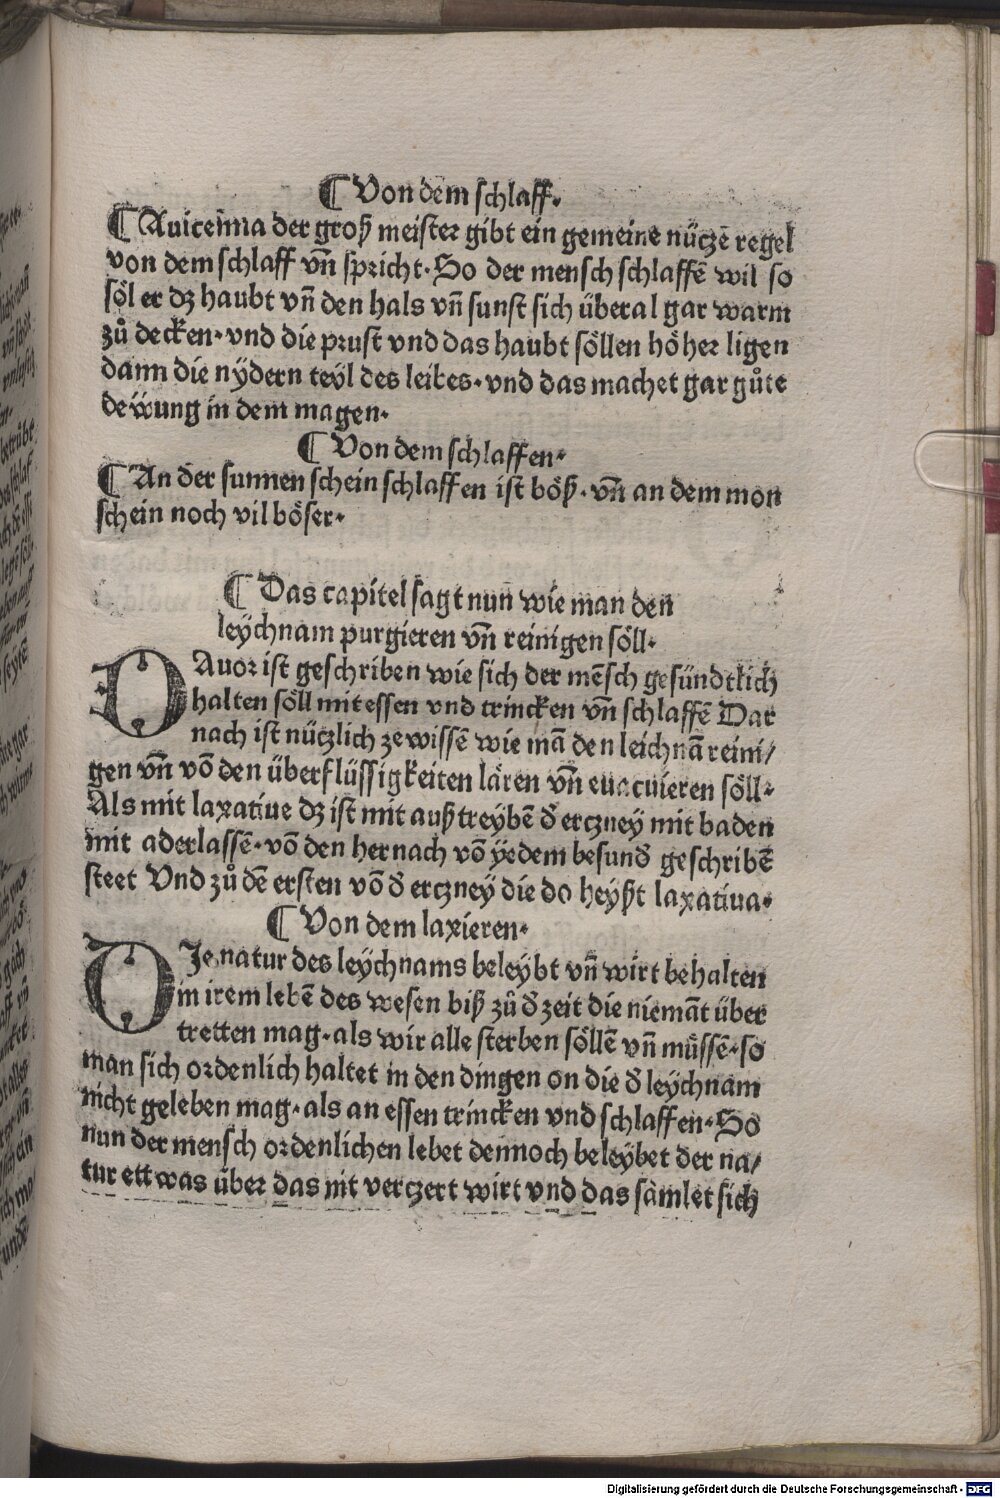 ¶ Von dem schlaff.
¶ Auicenna der groß meister gibt ein gemeine nüczẽ regel
von dem schlaff vñ spricht. So der mensch schlaffẽ wil so
söl er dz haubt vñ den hals vñ sunst sich überal gar warm
zů decken. vnd die prust vnd das haubt söllen höher ligen
dann die nÿdern teÿl des leibes. vnd das machet gar gůte
dewung in dem magen.
¶ Von dem schlaffen.
¶ An der sunnen schein schlaffen ist böß. vñ an dem mon
schein noch vil böser.
¶ Das capitel sagt nun wie man den
leÿchnam purgieren vñ reinigen söll.
DAuor ist geschriben wie sich der mẽsch gesündtlich
halten söll mit essen vnd trincken vñ schlaffẽ Dar
nach ist nüczlich ze wissẽ wie mã den leichnã reini/
gen vñ võ den überflüssigkeiten lären vñ euacuieren söll.
Als mit laxatiue dz ist mit auß treybẽ d̕ erczney mit baden
mit aderlassẽ. võ den hernach võ ÿedem besund̕ geschribẽ
steet Vnd zů dẽ ersten võ d̕ ercznëy die do heÿßt laxatiua.
¶ Von dem laxieren.
DIe natur des leÿchnams beleÿbt vñ wirt behalten
in irem lebẽ des wesen biß zů d̕ zeit die niemãt über
tretten mag. als wir alle sterben söllẽ vñ müssẽ. so
man sich ordenlich haltet in den dingen on die d̕ leÿchnam
nicht geleben mag. als an essen trincken vnd schlaffen. So
nun der mensch ordenlichen lebet dennoch beleÿbet der na/
tur ettwas über das nit verczert wirt vnd das sàmlet sich
Digitalisierung gefördert durch die Deutsche Forschungsgemeinschaft - DFG